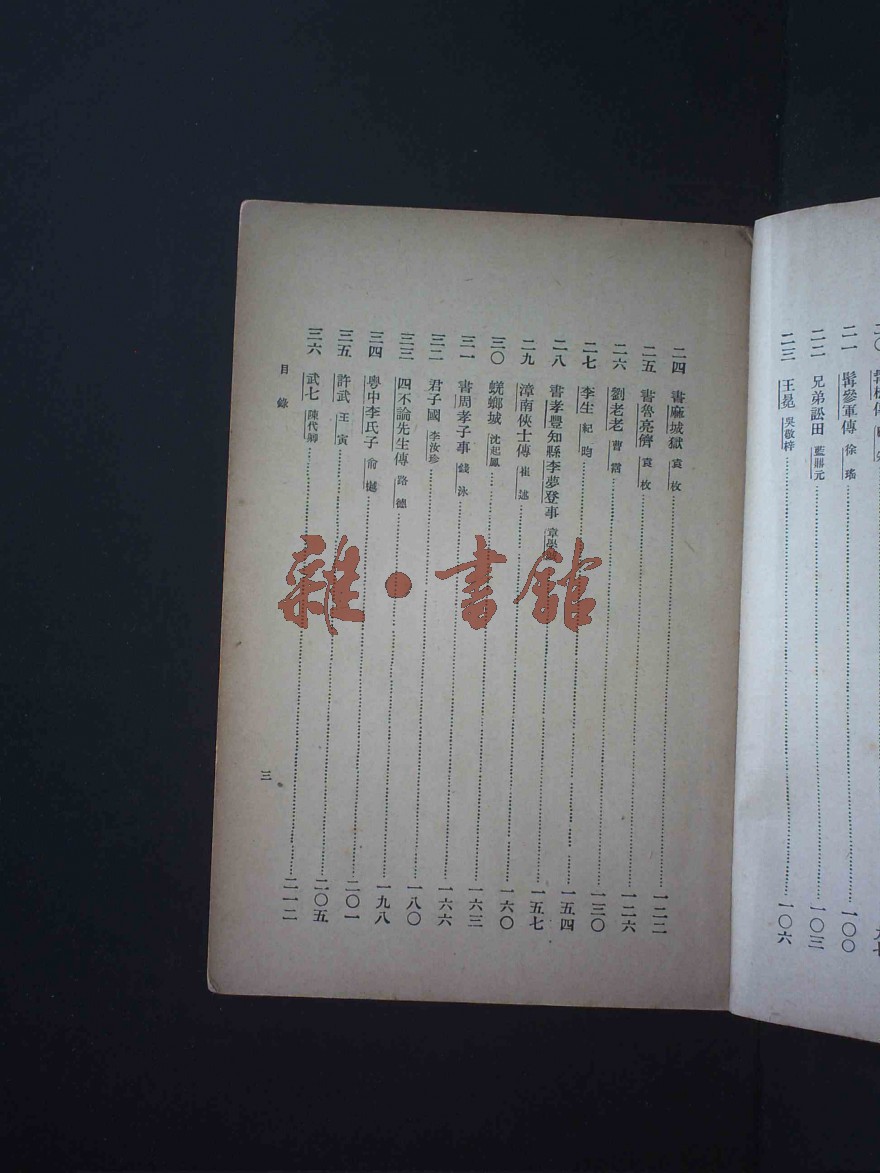 二一 髯參軍傳 徐瑤……一〇〇
二二 兄弟訟田 藍鼎元……一〇三
二三 王冕 吳敬梓……一〇六
二四 書麻城獄 袁枚……一二二
二五 書魯亮儕 袁枚……一二六
二六 劉老老 曹霑……一三〇
二七 李生 紀昀……一五四
二八 書孝豐知縣李夢登事 章學誠……一五七
二九 漳南俠士傳 崔述……一六〇
三〇 蜣螂城 沈起鳳……一六三
三一 書周孝子事 錢泳……一六六
三二 君子國 李汝珍……一八〇
三三 四不論先生傳 路德……一九八
三四 粵中李氏子 俞樾……二〇一
三五 許武 王寅……二〇五
三六 武七 陳代卿……二一二
目錄
三
雜·書館